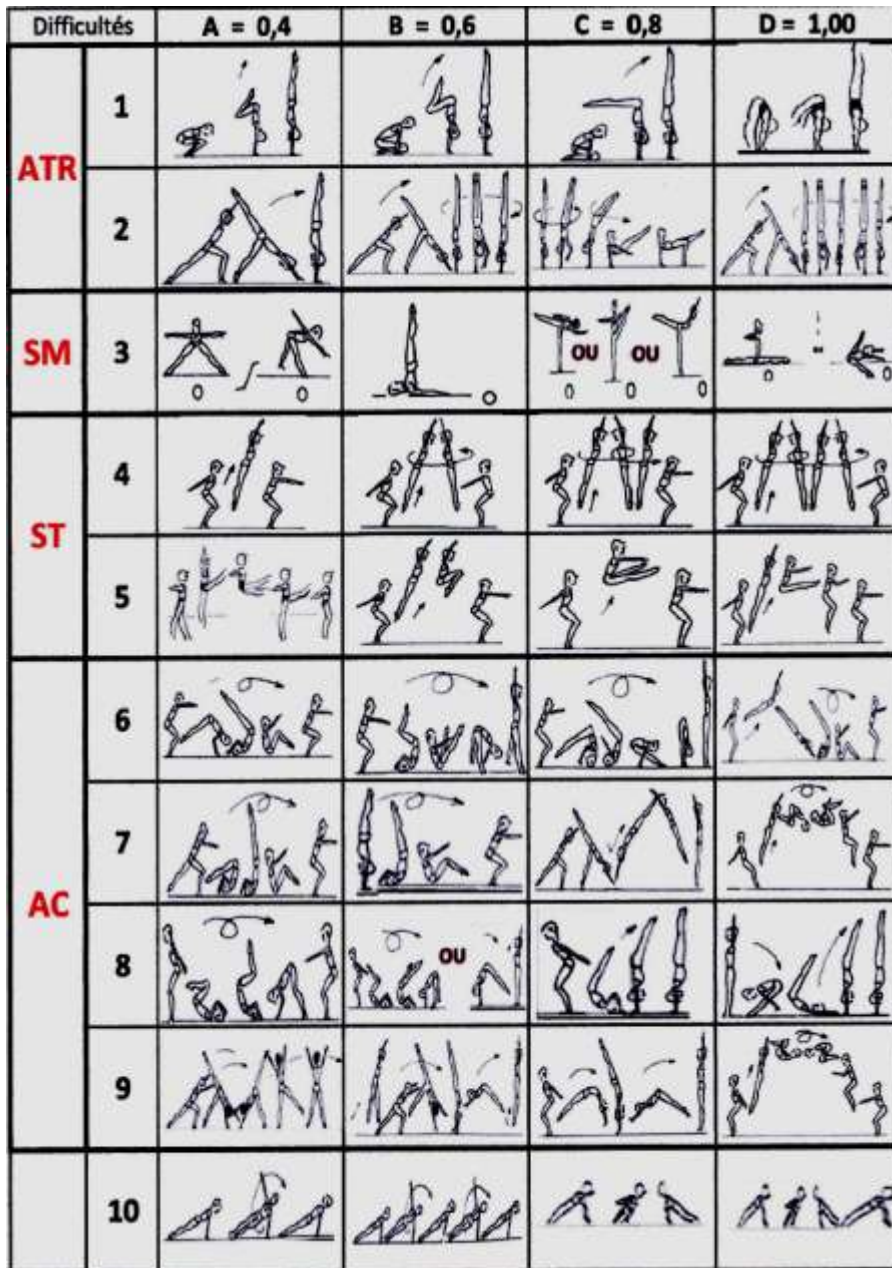 Difficultés A = 0,4 B = 0,6 C = 0,8 D = 1,00
ATR
1
2
SM
3
OU OU
ST
4
5
AC
6
7
8
OU
9
10